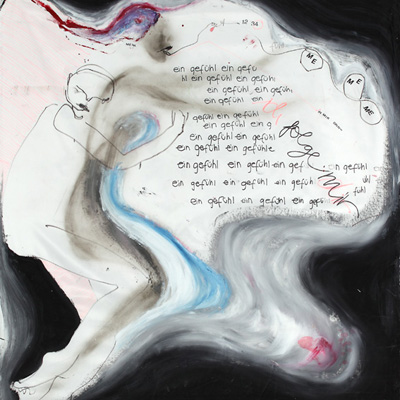 ME
ein gefühl ein gefü
hl ein gefühl ein gefühl
ein gefühl ein gefüh,
ein gefühl ein
ME
ME
gefühl ein gefühl
ein gefühl ein g
ein gefühl ein gefühl
ein gefühl ein gefühle
ein gefühl ein gefühl ein gef ein gefühl
ein gefühl ein gefühl ein gefüh ühl
fühl
ein gefühl ein gefühl ein gefü